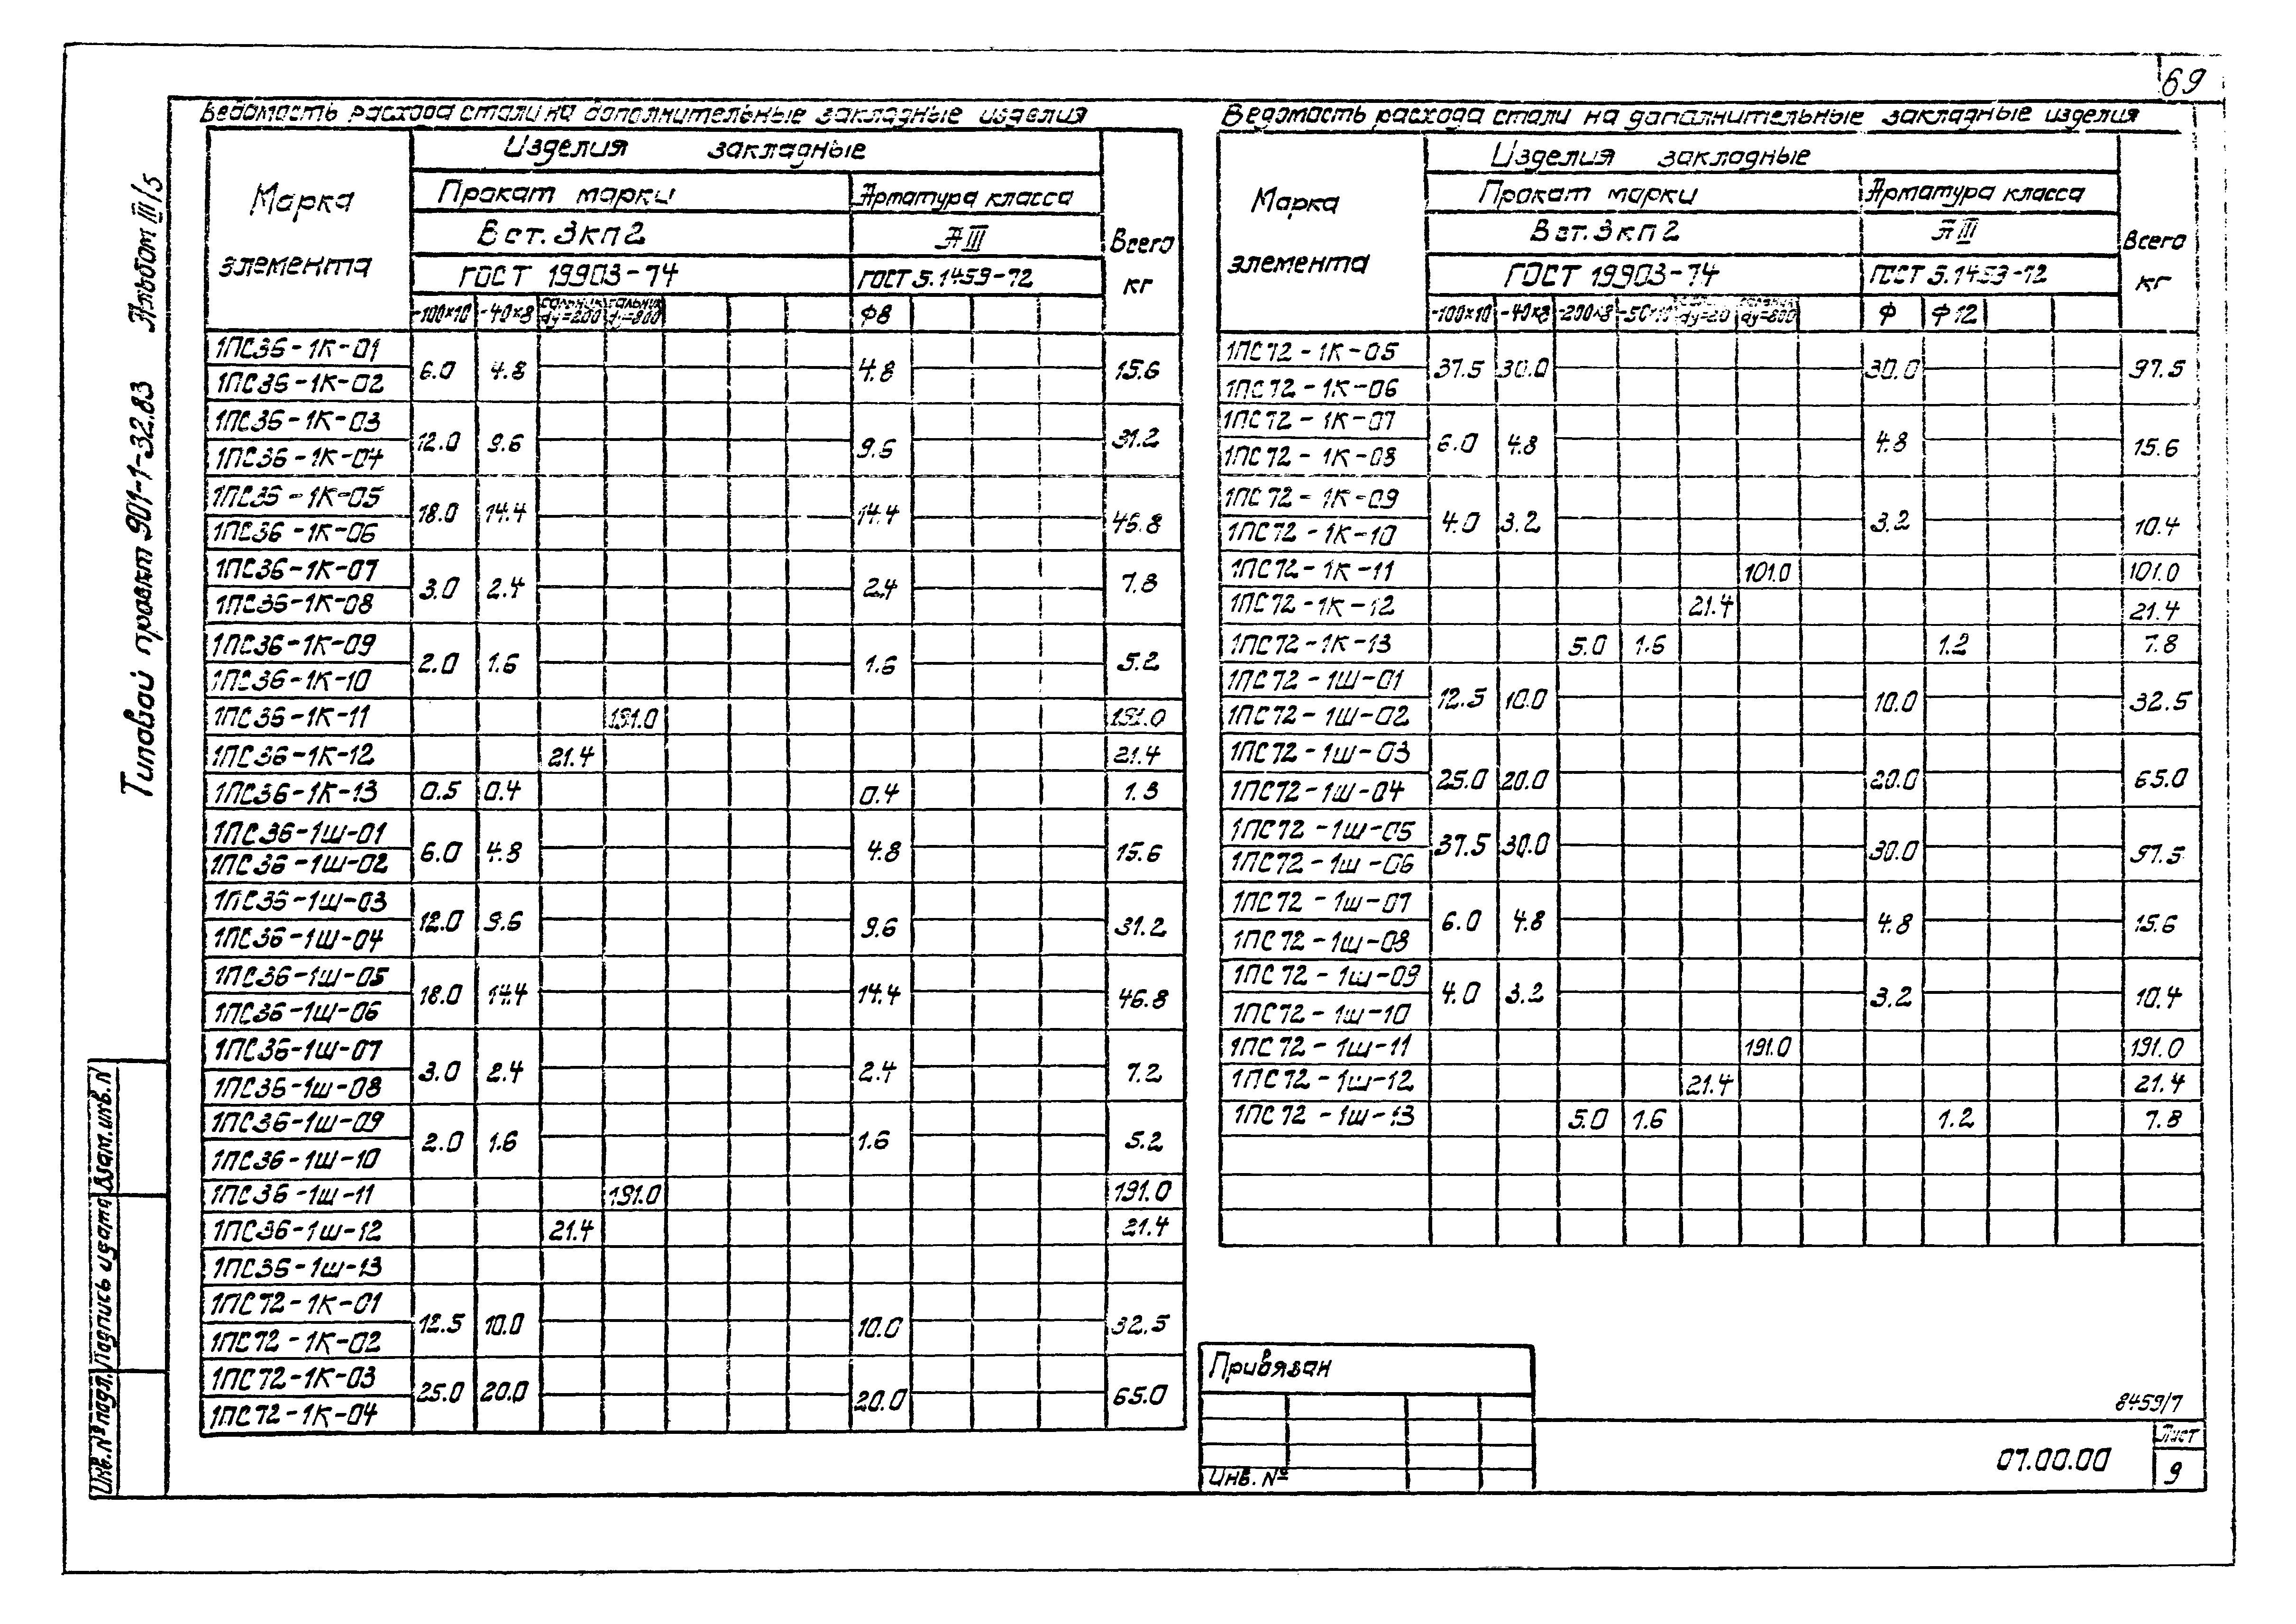 69
Типовой проект 901-1-32.83 Альбом III/5
Ведомость расхода стали на дополнительные закладные изделия
Марка элемента
Изделия закладные
Всего кг
Прокат марки
Арматура класса
В ст. 3 кп 2
А III
ГОСТ 19903-74
ГОСТ 5.1459-72
-100×10 -40×8 сальник dy=200 сальник dy=800 Ф8
1ПС36-1К-01
1ПС36-1К-02
6.0 4.8 4.8 15.6
1ПС36-1К-03
1ПС36-1К-04
12.0 9.6 9.6 31.2
1ПС36-1К-05
1ПС36-1К-06
18.0 14.4 14.4 46.8
1ПС36-1К-07
1ПС36-1К-08
3.0 2.4 2.4 7.8
1ПС36-1К-09
1ПС36-1К-10
2.0 1.6 1.6 5.2
1ПС36-1К-11 191.0 191.0
1ПС36-1К-12 21.4 21.4
1ПС36-1К-13 0.5 0.4 0.4 1.3
1ПС36-1Ш-01
1ПС36-1Ш-02
6.0 4.8 4.8 15.6
1ПС36-1Ш-03
1ПС36-1Ш-04
12.0 9.6 9.6 31.2
1ПС36-1Ш-05
1ПС36-1Ш-06
18.0 14.4 14.4 46.8
1ПС36-1Ш-07
1ПС36-1Ш-08
3.0 2.4 2.4 7.2
1ПС36-1Ш-09
1ПС36-1Ш-10
2.0 1.6 1.6 5.2
1ПС36-1Ш-11 191.0 191.0
1ПС36-1Ш-12 21.4 21.4
1ПС36-1Ш-13
1ПС72-1К-01
1ПС72-1К-02
12.5 10.0 10.0 32.5
1ПС72-1К-03
1ПС72-1К-04
25.0 20.0 20.0 65.0
Ведомость расхода стали на дополнительные закладные изделия
Марка элемента
Изделия закладные
Всего кг
Прокат марки
Арматура класса
В ст. 3 кп 2
А III
ГОСТ 19903-74
ГОСТ 5.1459-72
-100×10 -40×8 -200×8 -50×10 dy=20 dy=800 Ф Ф12
1ПС72-1К-05
1ПС72-1К-06
37.5 30.0 30.0 97.5
1ПС72-1К-07
1ПС72-1К-08
6.0 4.8 4.8 15.6
1ПС72-1К-09
1ПС72-1К-10
4.0 3.2 3.2 10.4
1ПС72-1К-11 101.0 101.0
1ПС72-1К-12 21.4 21.4
1ПС72-1К-13 5.0 1.6 1.2 7.8
1ПС72-1Ш-01
1ПС72-1Ш-02
12.5 10.0 10.0 32.5
1ПС72-1Ш-03
1ПС72-1Ш-04
25.0 20.0 20.0 65.0
1ПС72-1Ш-05
1ПС72-1Ш-06
37.5 30.0 30.0 97.5
1ПС72-1Ш-07
1ПС72-1Ш-08
6.0 4.8 4.8 15.6
1ПС72-1Ш-09
1ПС72-1Ш-10
4.0 3.2 3.2 10.4
1ПС72-1Ш-11 191.0 191.0
1ПС72-1Ш-12 21.4 21.4
1ПС72-1Ш-13 5.0 1.6 1.2 7.8
Привязан
Инв. №
8459/7
07.00.00
Лист
9
Инв. № подл. Подпись и дата Взам. инв. N